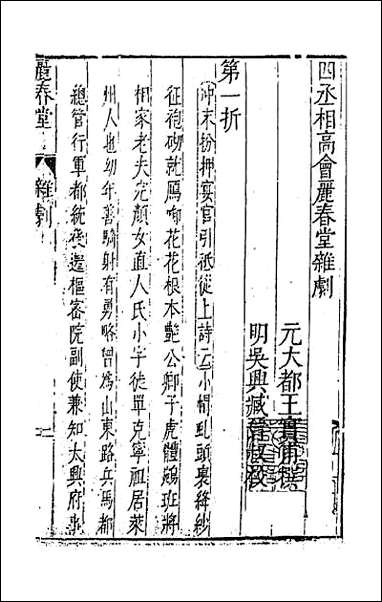 四丞相高會麗春堂雜劇
元大都王實甫撰
明吳興臧晉叔校
第一折
沖末扮押宴官引祗從上詩云小帽虬頭裹絳紗
征袍砌就鴈啣花花根本艷公卿子虎體鵷班將
相家老夫完顏女直人氏小字徒單克寧祖居萊
州人也幼年善騎射有勇略曾爲山東路兵馬都
總管行軍都統後遷樞密院副使兼知大興府事
麗春堂
雜劇
一